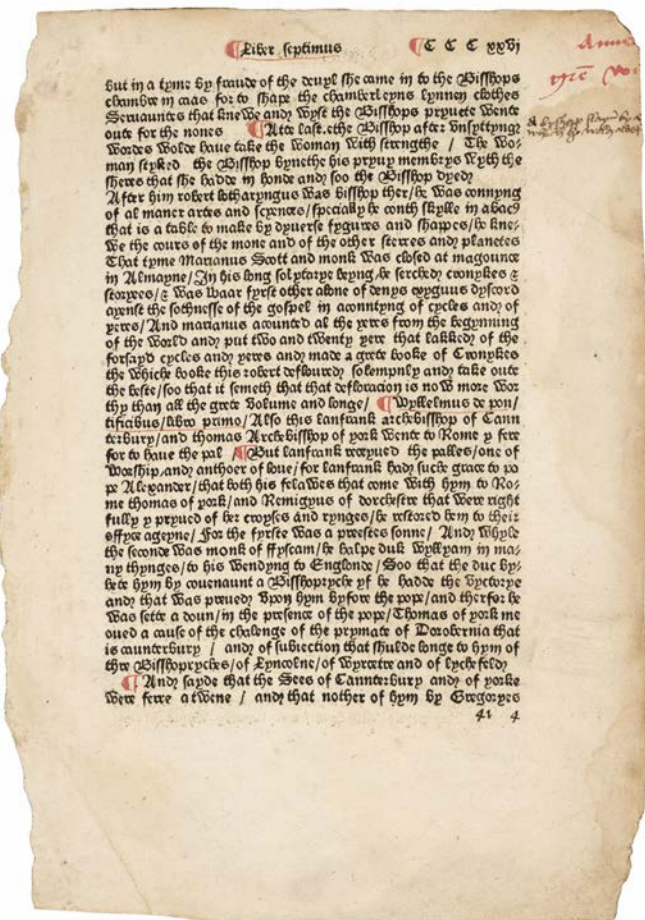 ¶Liber septimus ¶C C C xxvj
but in a tyme by fraude of the deuyl she came in to the Bisshops
chambre in caas for to shape the chamberleyns lynnen clothes
Seruauntes that knewe and wyst the Bisshops pryuete wente
oute for the nones ¶Atte last.ethe Bisshop after vnsyttynge
wordes wolde haue take the woman with strengthe / The wo-
man styked the Bisshop bynethe his pryuy membrys wyth the
sheres that she hadde in honde and soo the Bisshop dyed
After him robert lotharyngus was bisshop ther/he was connyng
of al maner artes and scyences/specially he couth skylle in abac9
that is a table to make by dyuerse fygures and shappes/he kne-
we the cours of the mone and of the other sterres and planetes
That tyme Marianus Scott and monk was closed at magounce
in Almayne/In his long solytarye beyng/he serched cronykes &
storyes/& was waar fyrst other alone of denys exyguus dyscord
ayenst the sothnesse of the gospel in acountyng of cycles and of
yeres/And marianus acounted al the yeres from the begynnyng
of the world and put two and twenty yere that lakked of the
forsayd cycles and yeres and made a grete booke of Cronykes
the whiche booke this robert defloured solempnly and take oute
the beste/soo that it semeth that that defloracion is now more wor
thy than all the grete volume and longe/ ¶Wyllelmus de pon/
tificibus/libro primo/Also this lanfrank archebisshop of Cann
terbury/and thomas Archebisshop of york wente to Rome y fere
for to haue the pal /¶But lanfrank receyued the palles/one of
worship,and anthoer of loue/for lanfrank had suche grace to po
pe Alexander/that both his felawes that come with hym to Ro-
me thomas of york/and Remigyus of dorchestre that were right
fully y pryued of her croyses and rynges/he restored hem to their
offyce ageyne/ For the fyrste was a preestes sonne/ And whyle
the seconde was monk of ffyscam/he halpe duk wyllyam in ma-
ny thynges/to his wendyng to Englonde/ Soo that the duc by-
hete hym by couenaunt a Bisshopryche yf he hadde the vyctorye
and that was preued vpon hym byfore the pope/and therfor he
was sette a doun/in the presence of the pope/Thomas of york me
oued a cause of the chalenge of the prymate of Dorobernia that
is caunterbury / and of subiection that shulde longe to hym of
thre Bisshopryches/of Lyncolne/of Wyrcetre and of lychefeld
¶ And sayde that the Sees of Cannterbury and of yorke
were ferre atwene / and that nother of hym by Gregoryes
41 4